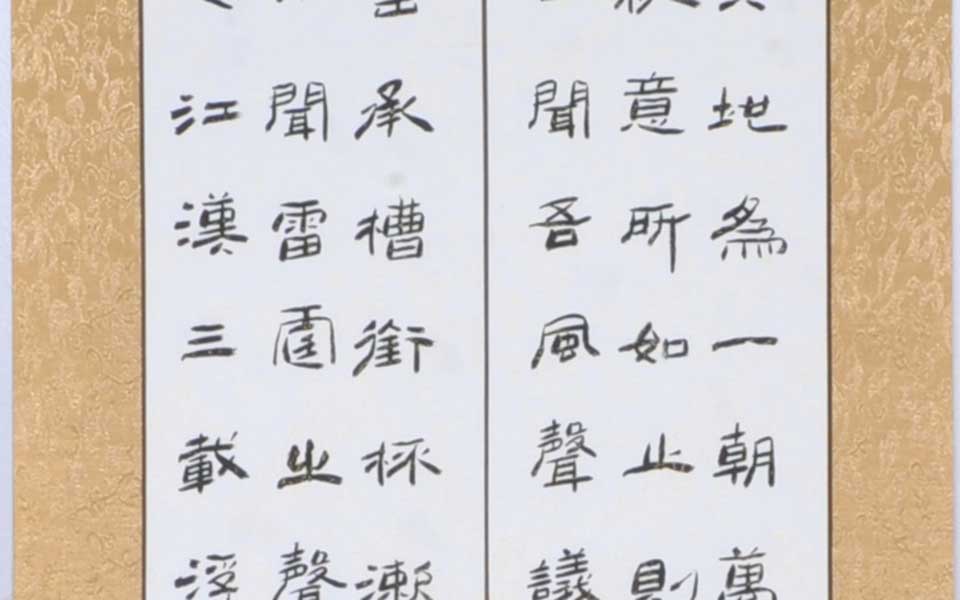 地爲一朝萬
意所如止則
聞吾風聲議
承槽銜杯漱
聞雷霆之聲
江漢三載浮